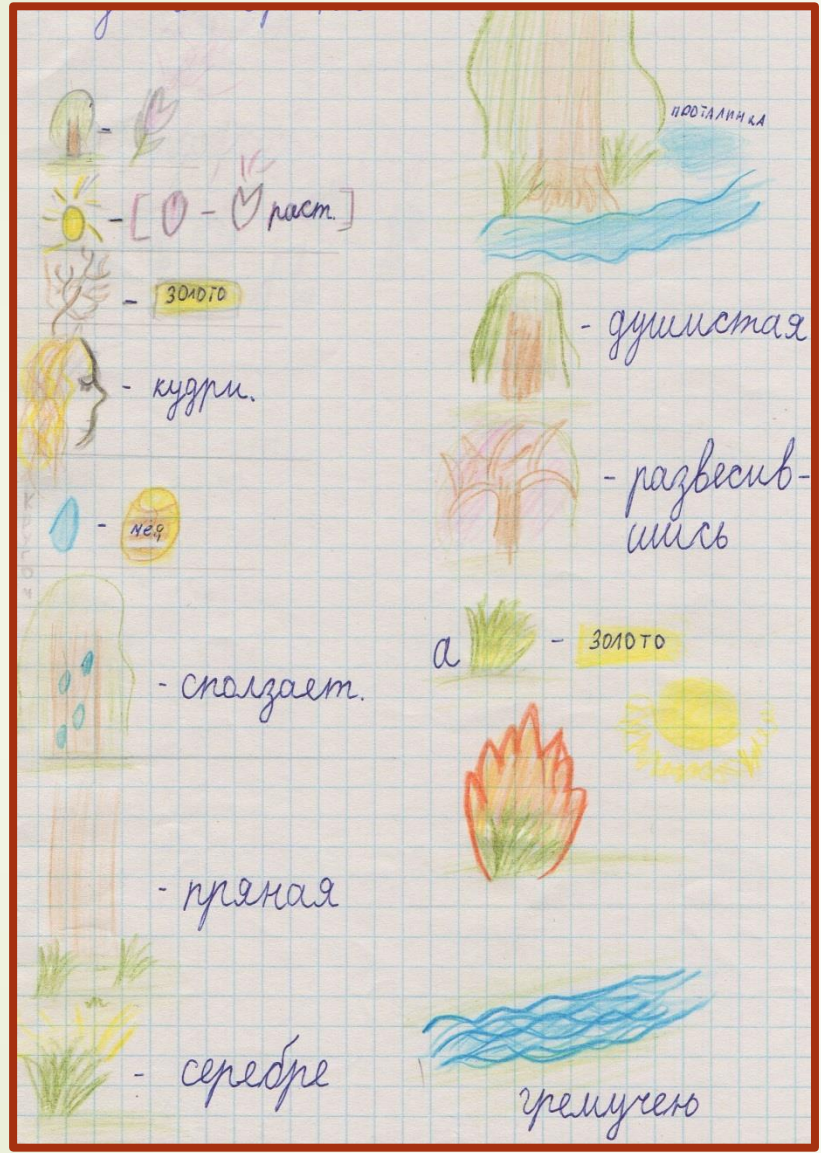 - [ - раст.]
- ЗОЛОТО
- кудри.
- мёд
- сползает.
- пряная
- серебре
ПРОТАЛИНКА
- душистая
- развесив-
шись
а - ЗОЛОТО
гремучею